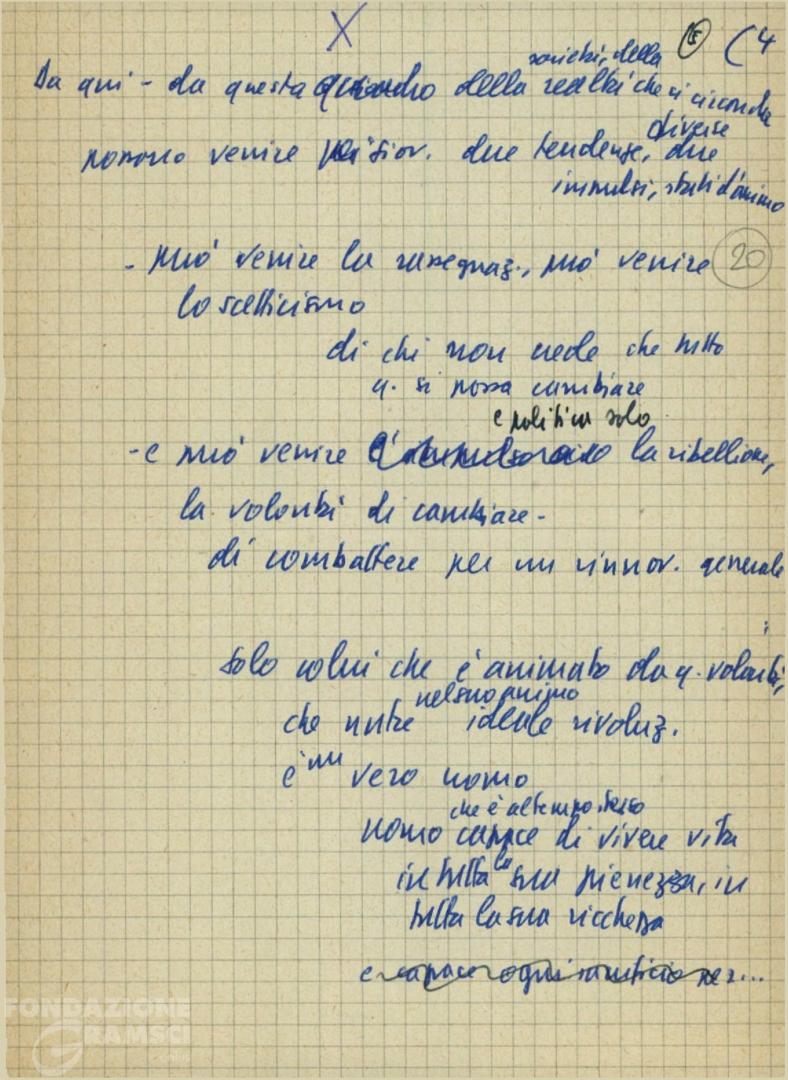 X
società, della 5 (4
Da qui - da questa quadro della realtà che ci circonda
diverse
possono venire pei giov. due tendenze, due
impulsi, stati d'animo
- può venire la rassegnaz., può venire 20
lo scetticismo
di chi non crede che tutto
q. si possa cambiare
e politica solo
- e può venire la ribellione,
la volontà di cambiare -
di combattere per un rinnov. generale
;
Solo colui che è animato da q. volontà,
nel suo animo
che nutre ideale rivoluz.
è un vero uomo
che è al tempo stesso
uomo capace di vivere vita
in tutta la sua pienezza, in
tutta la sua ricchezza
e capace ogni sacrificio per...
FONDAZIONE
GRAMSCI